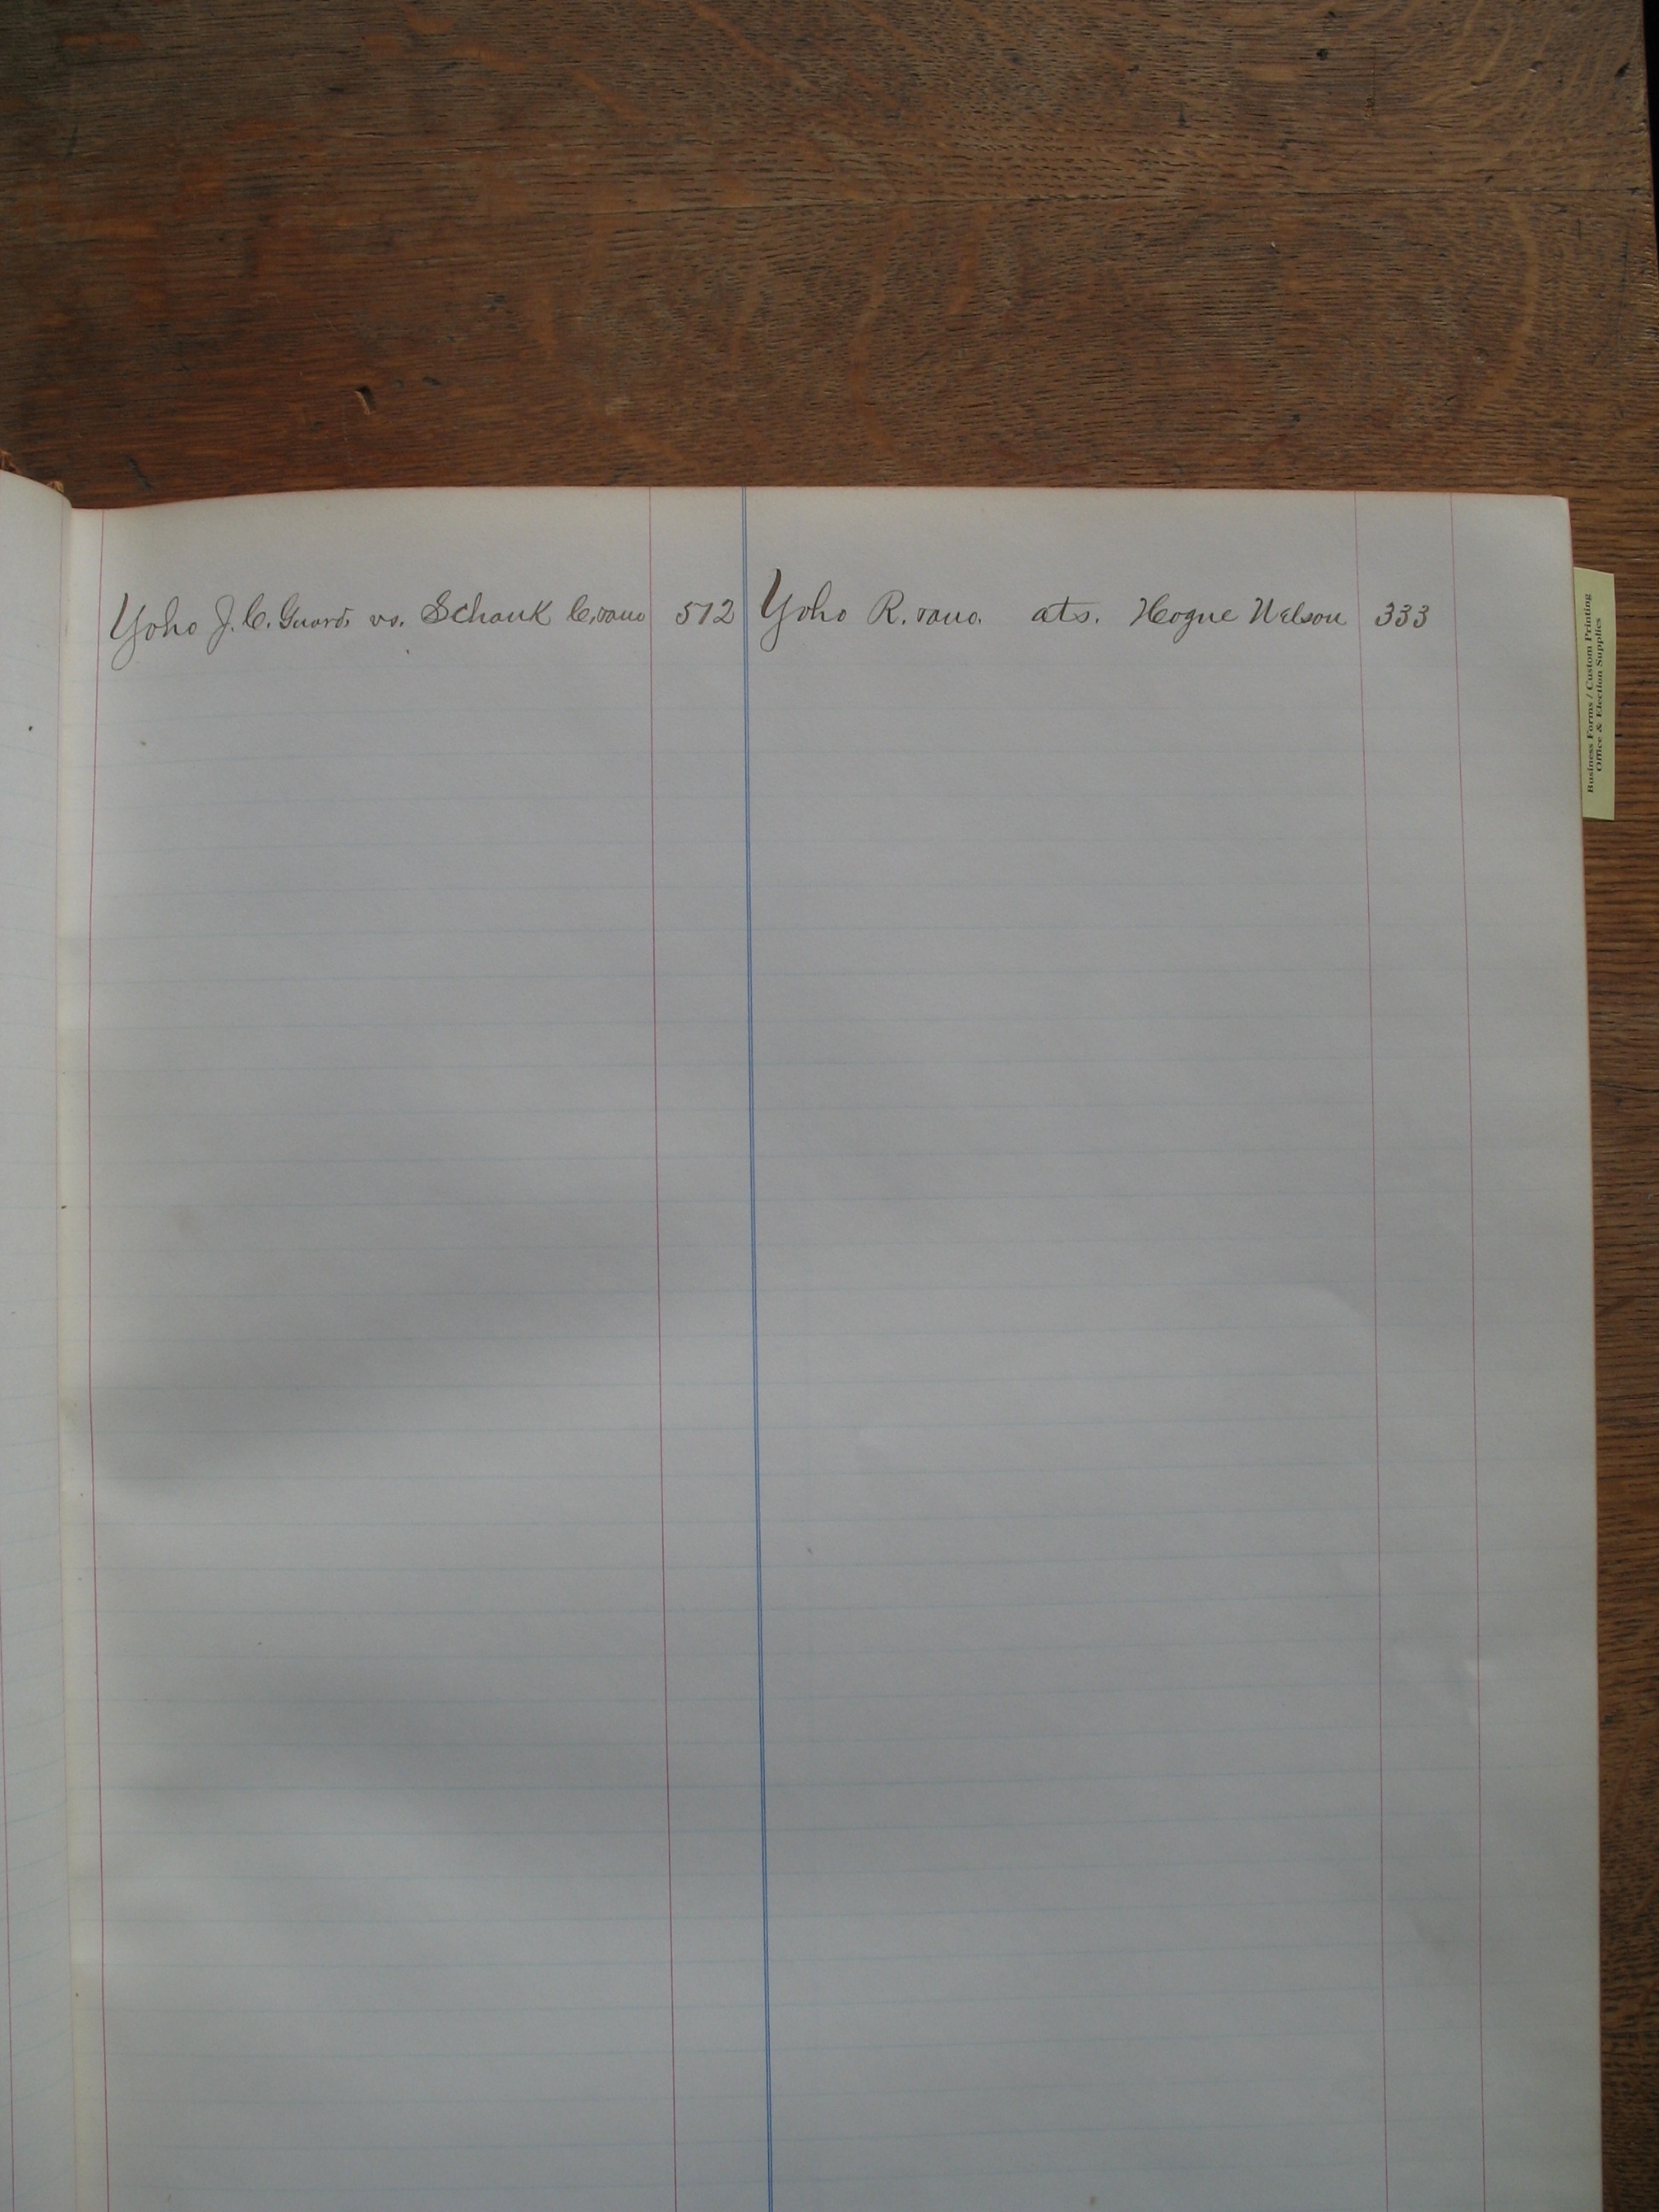 Yoho J. C. Guard. vs. Schauk C. et al 512
Yoho R. et al. ats. Hogue Nelson 333
Business Forms / Custom Printing
Office & Election Supplies